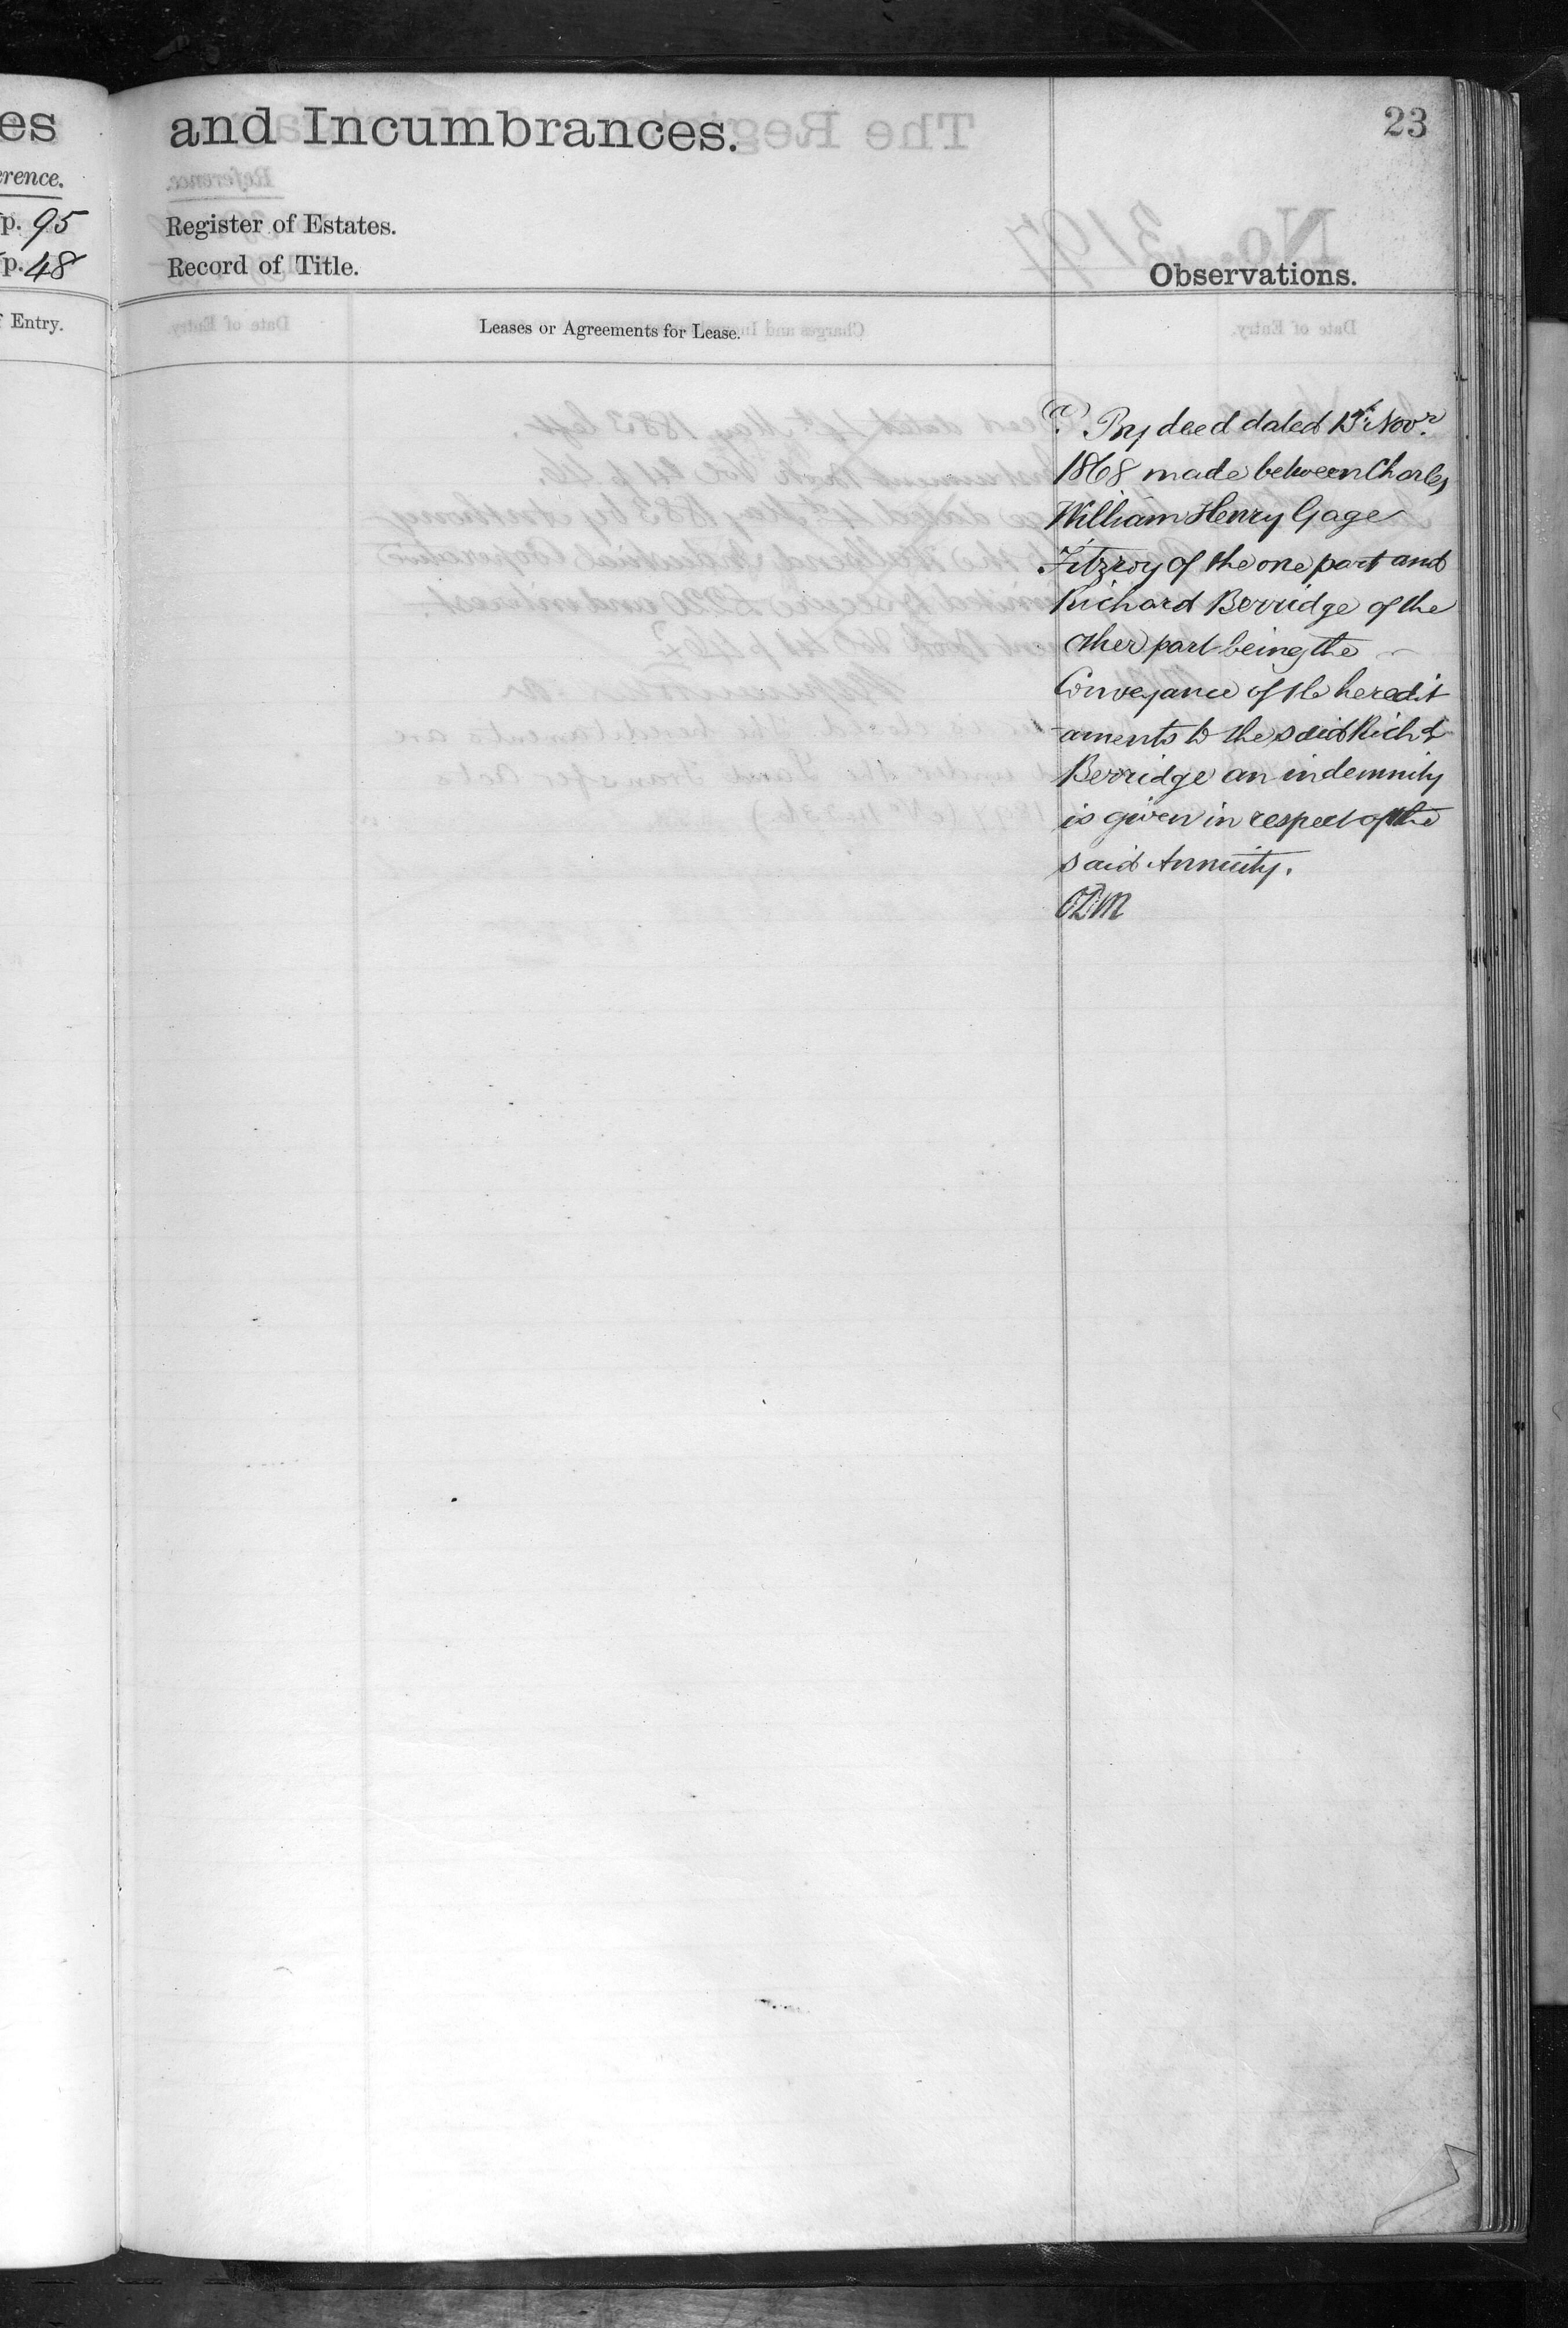 es
and Incumbrances.
23
erence.
p. 95
Register of Estates.
p. 48
Record of Title.
Observations.
Entry.
Leases or Agreements for Lease.
By deed dated Novr
1868 made between Charles
William Henry Gage
Fitzroy of the one part and
Richard Berridge of the
other part being the
Conveyance of the heredit
aments to the said Richd
Berridge an indemnity
is given in respect of the
said Annuity.